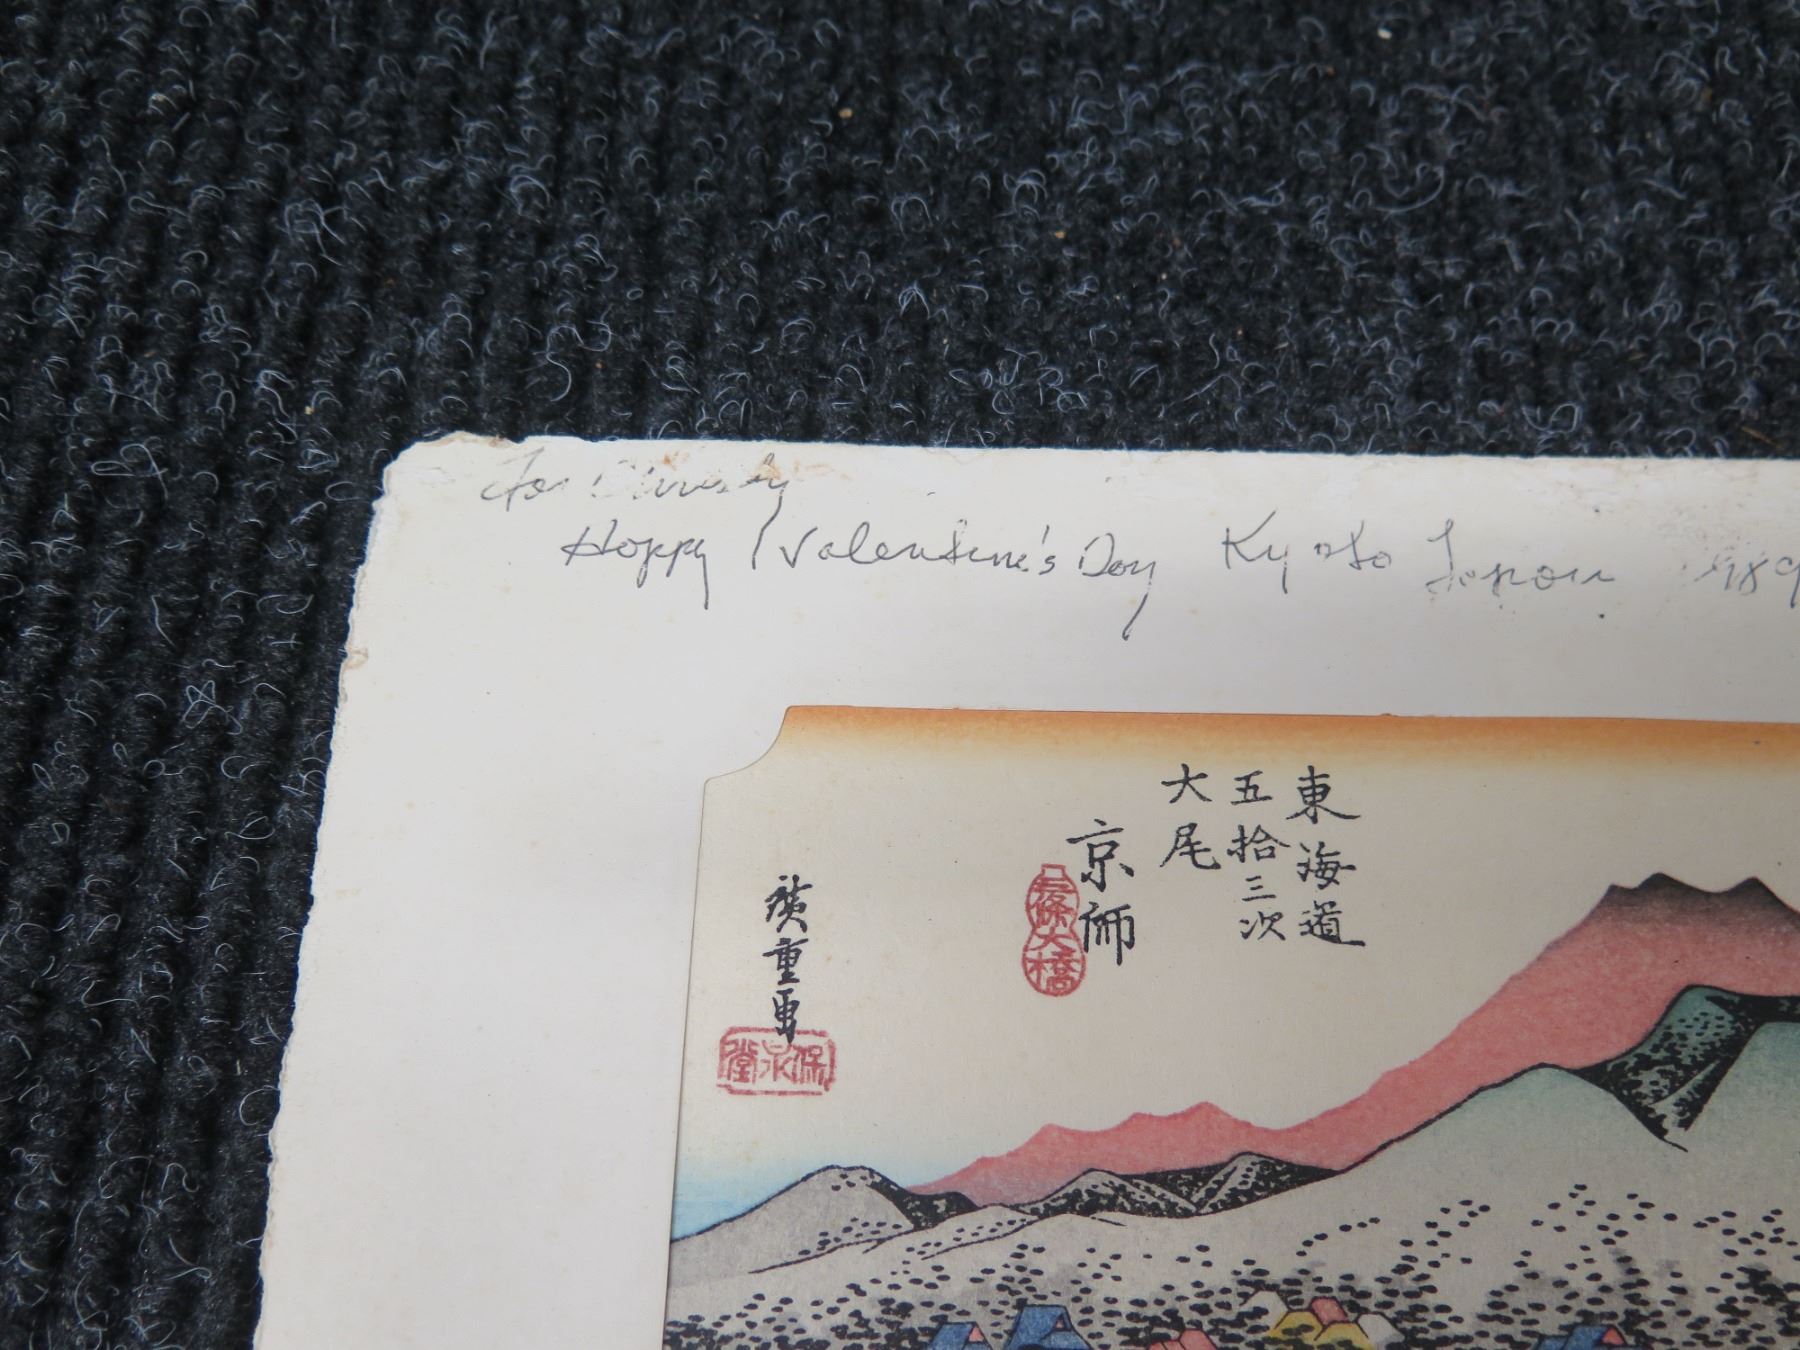 For Christy
Happy Valentine's Day Kyoto Japan 1989
東海道
五拾三次
大尾
京師
五條大橋
廣重画
保永堂